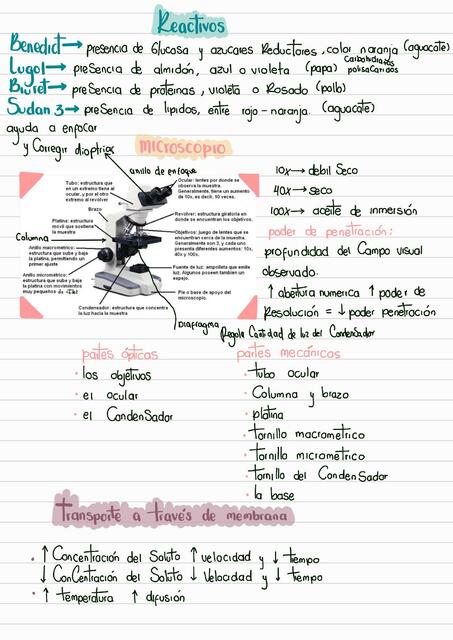 Reactivos
Benedict → presencia de Glucosa y azucares Reductores, color naranja (aguacate)
Lugol → presencia de almidón, azul o violeta (papa) Carbohidratos polisacaridos
Biuret → presencia de proteinas, violeta o Rosado (pollo)
Sudan 3 → presencia de lipidos, entre rojo-naranja. (aguacate)
ayuda a enfocar
y Corregir dioptrias
microscopio
anillo de enfoque
Tubo: estructura que
en un extremo tiene al
ocular, y por el otro
extremo al revólver
Brazo
Platina: estructura
movil que sostiene la
muestra
Columna
Anillo macrometrico:
estructura que sube y
baja la platina, permitiendo un
primer
Anillo micrometrico:
estructura que sube y baja
la platina con movimientos
muy pequeños
Condensador: estructura que concentra
la luz hacia la muestra
Ocular: lentes por donde se
observa la muestra.
Generalmente, tiene un aumento
de 10x, es decir, 10 veces.
Revólver: estructura giratoria en
donde se encuentran los objetivos.
Objetivos: juego de lentes que se
encuentran cerca de la muestra.
Generalmente son 3, y cada uno
presenta diferentes aumentos: 10x,
40x y 100x.
Fuente de luz: ampolleta que emite
luz. Algunos poseen también un
espejo.
Pie o base de apoyo del
microscopio.
Diafragma
Regula Cantidad de luz del Condensador
10x → debil Seco
40x → seco
100x → aceite de inmersión
poder de penetración:
profundidad del Campo visual
observado.
↑ abertura numerica ↑ poder de
Resolución = ↓ poder penetración
partes ópticas
· los objetivos
· el ocular
· el Condensador
partes mecánicas
· tubo ocular
· Columna y brazo
· platina
· tornillo macrométrico
· tornillo micrométrico
· tornillo del Condensador
· la base
transporte a través de membrana
· ↑ Concentración del Soluto ↑ velocidad y ↓ tiempo
↓ Concentración del Soluto ↓ Velocidad y ↓ tiempo
· ↑ temperatura ↑ difusión